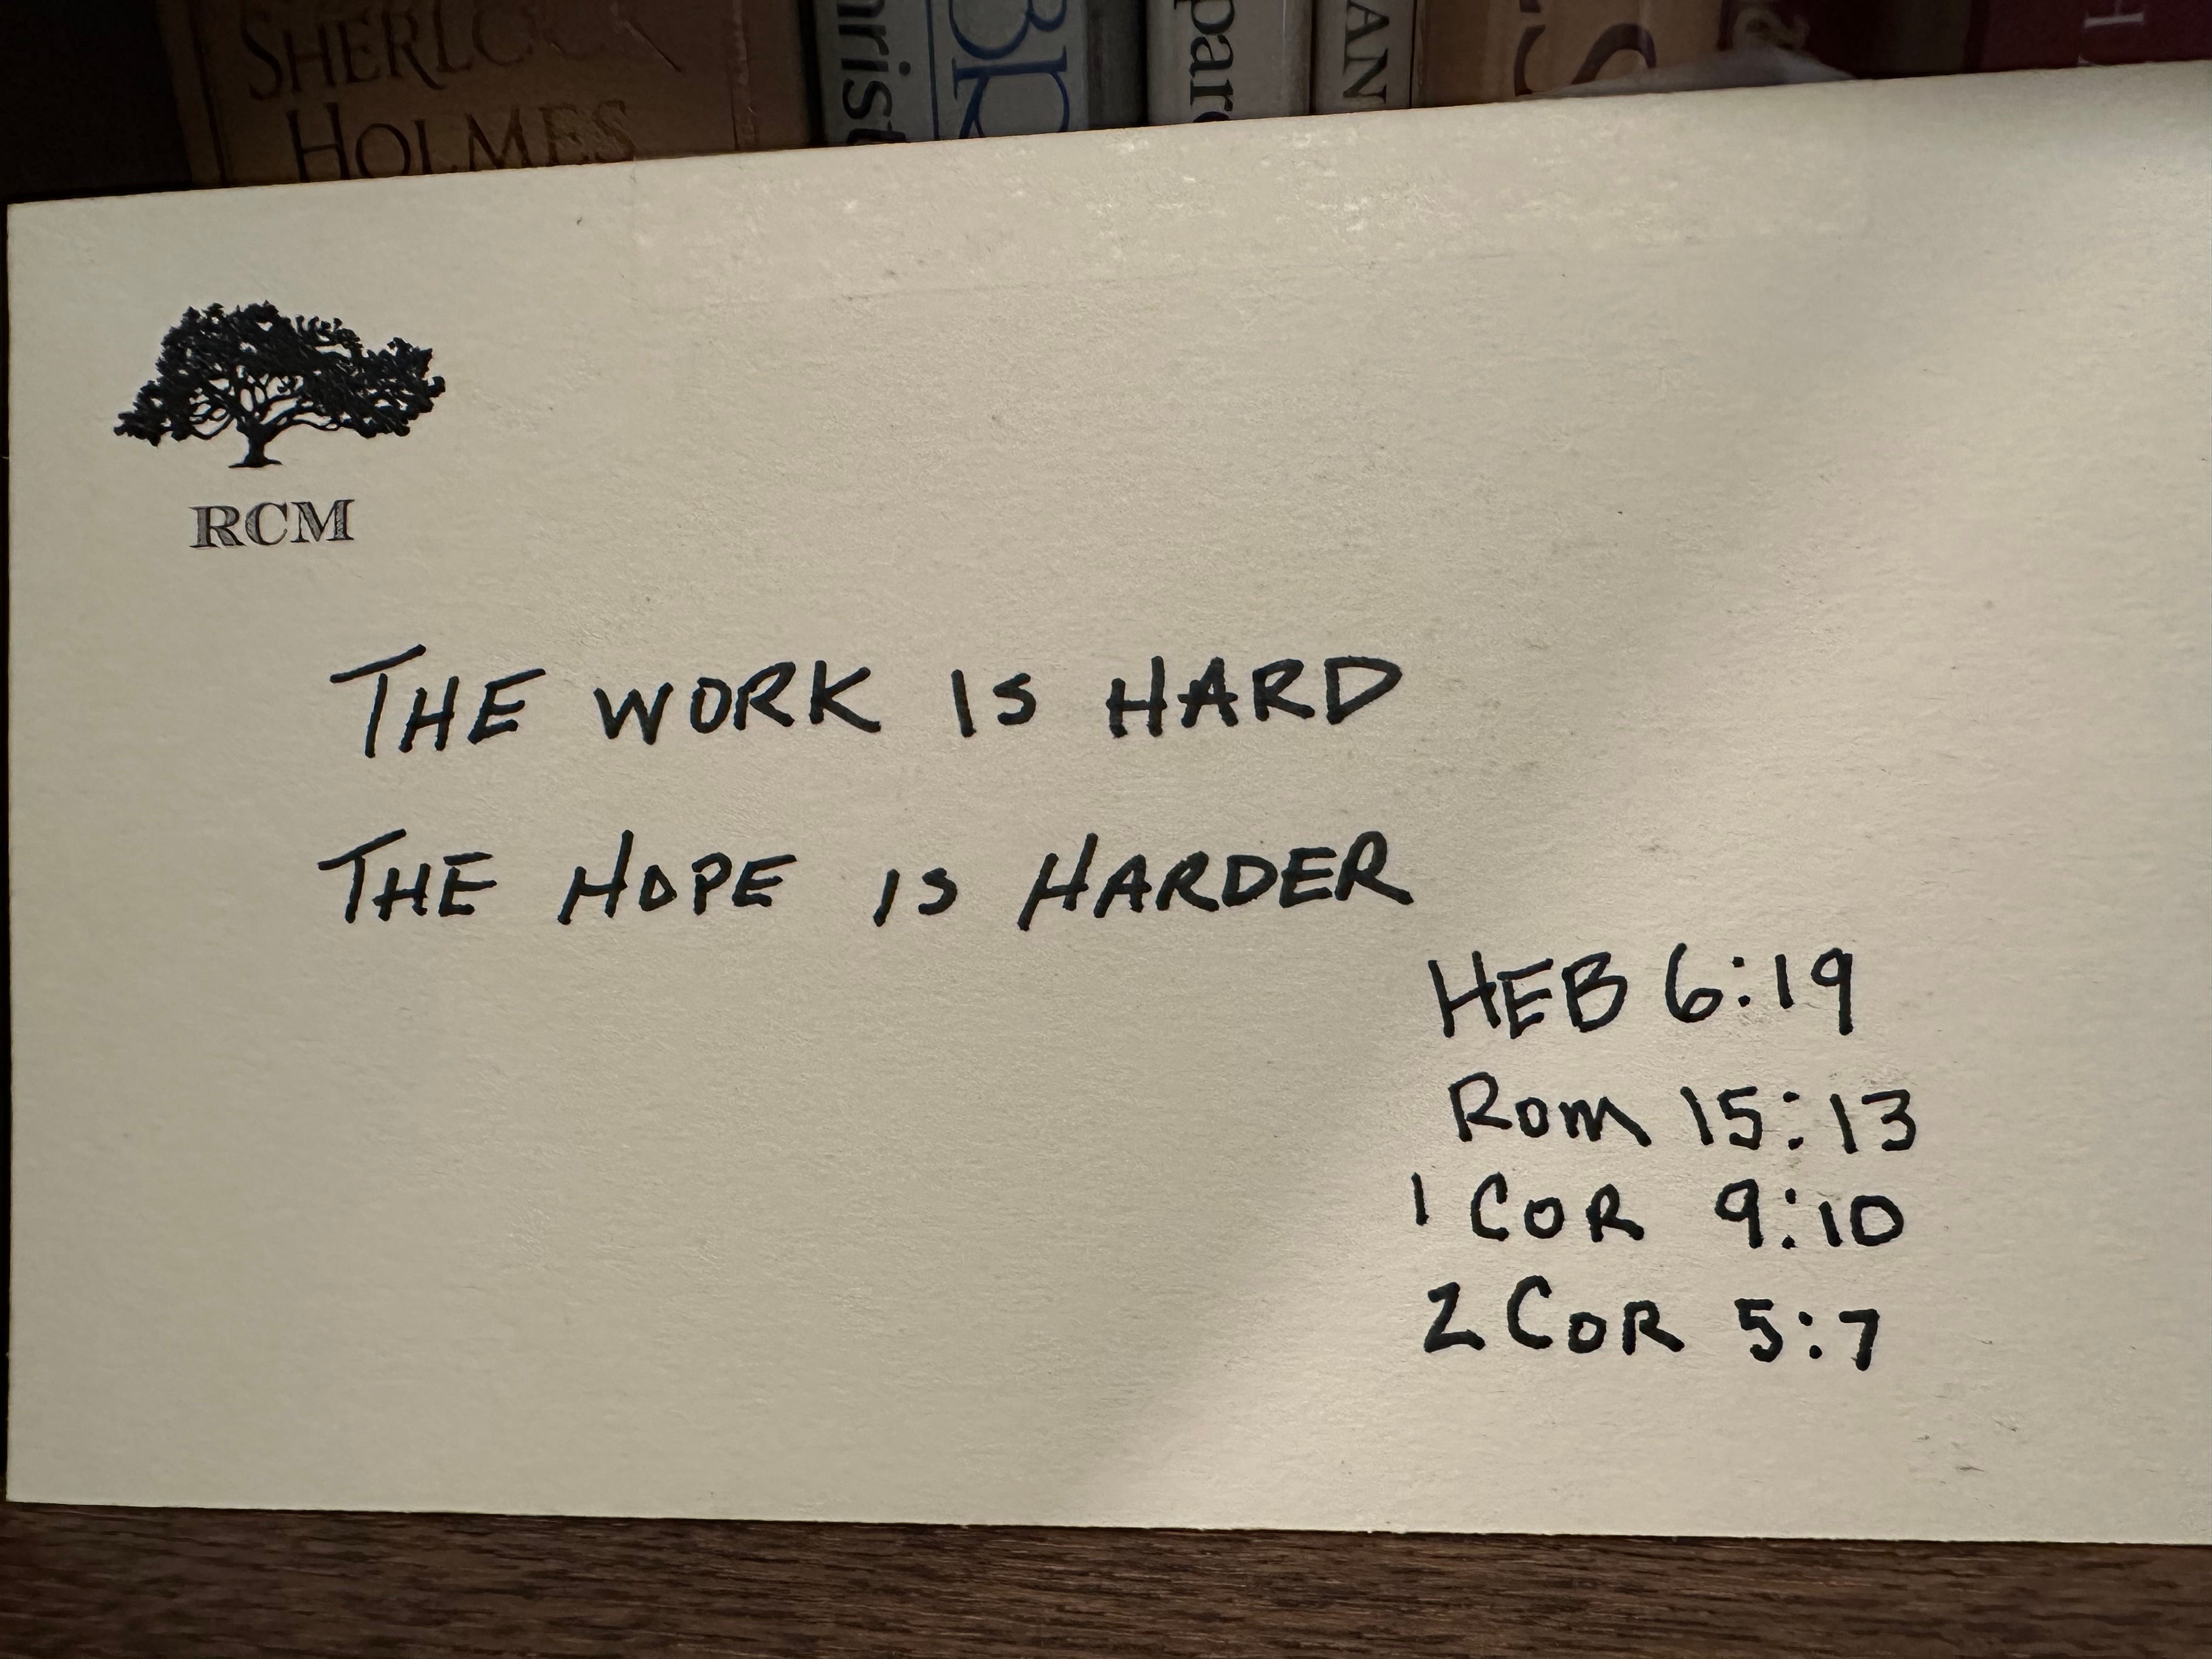 SHERLOCK
HOLMES
AN
RCM
THE WORK IS HARD
THE HOPE IS HARDER
HEB 6:19
Rom 15:13
1 COR 9:10
2 COR 5:7